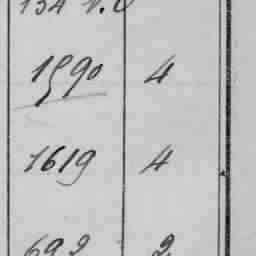 1590 4
1619 4
692 2